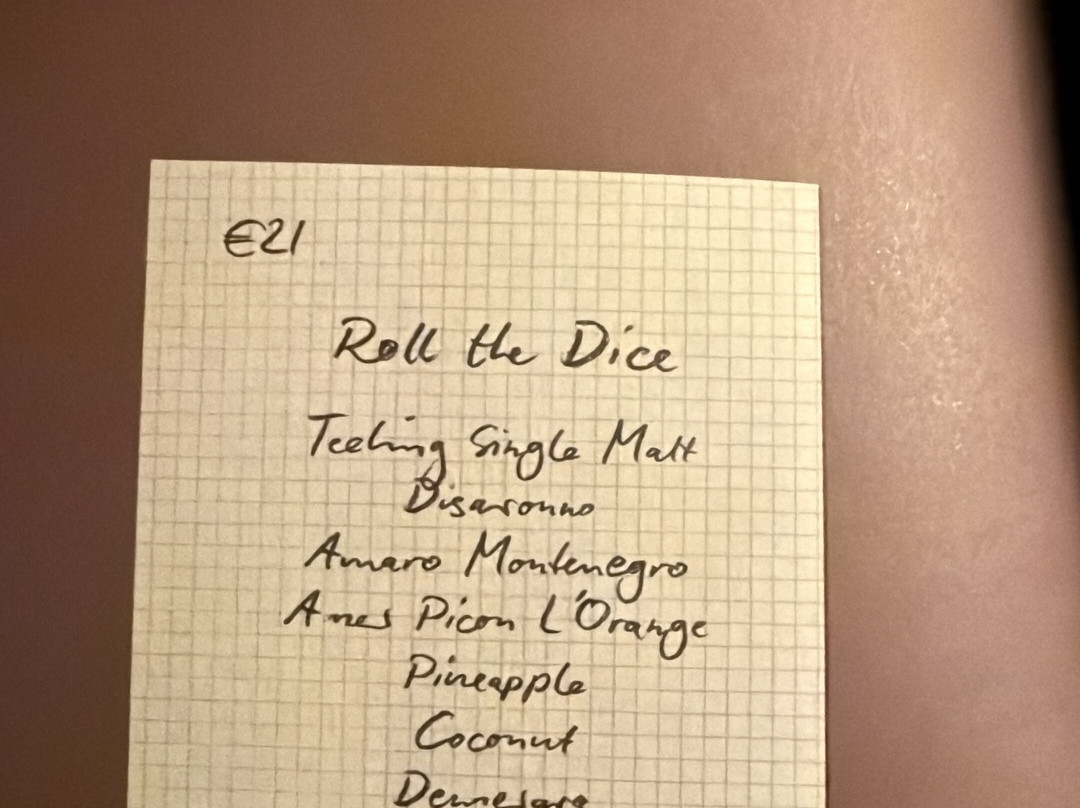 €21
Roll the Dice
Teeling Single Malt
Disaronno
Amaro Montenegro
Amer Picon L'Orange
Pineapple
Coconut
Demerara